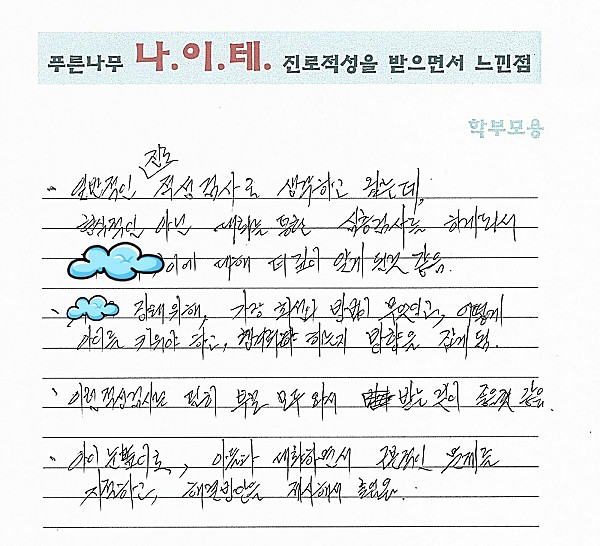 푸른나무 나.이.테. 진로적성을 받으면서 느낀점
학부모용
일반적인 진로 적성검사로 생각하고 왔는데,
형식적인 아닌 대화를 통한 심층검사를 하게되서
이에 대해 더 깊이 알게 된것 같음.
장래위해, 가장 최선의 방법이 무엇인고, 어떻게
아이를 키워야 하고, 하는지 방향을 잡게 됨.
이런 적성검사는 필히 부모 모두 와서 받는 것이 좋은것 같음.
아이 눈높이로, 이들과 대화하면서 구체적인 문제를
지적하고, 해결방안을 제시해서 좋았음.